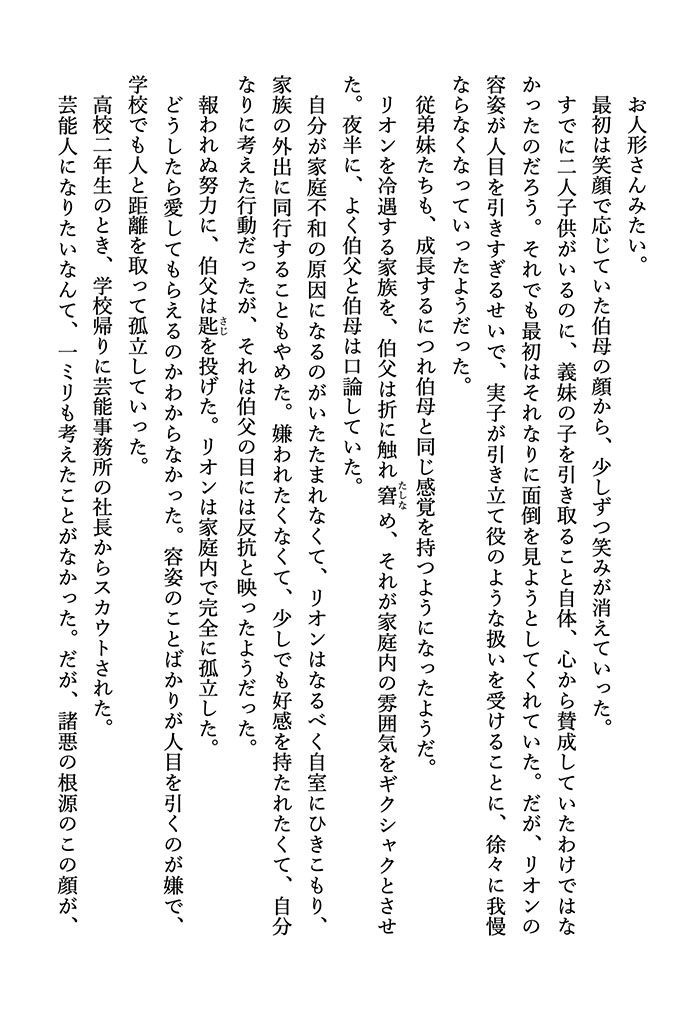 お人形さんみたい。
最初は笑顔で応じていた伯母の顔から、少しずつ笑みが消えていった。
すでに二人子供がいるのに、義妹の子を引き取ること自体、心から賛成していたわけではな
かったのだろう。それでも最初はそれなりに面倒を見ようとしてくれていた。だが、リオンの
容姿が人目を引きすぎるせいで、実子が引き立て役のような扱いを受けることに、徐々に我慢
ならなくなっていったようだった。
従弟妹たちも、成長するにつれ伯母と同じ感覚を持つようになったようだ。
リオンを冷遇する家族を、伯父は折に触れ窘め、それが家庭内の雰囲気をギクシャクとさせ
た。夜半に、よく伯父と伯母は口論していた。
自分が家庭不和の原因になるのがいたたまれなくて、リオンはなるべく自室にひきこもり、
家族の外出に同行することもやめた。嫌われたくなくて、少しでも好感を持たれたくて、自分
なりに考えた行動だったが、それは伯父の目には反抗と映ったようだった。
報われぬ努力に、伯父は匙を投げた。リオンは家庭内で完全に孤立した。
どうしたら愛してもらえるのかわからなかった。容姿のことばかりが人目を引くのが嫌で、
学校でも人と距離を取って孤立していった。
高校二年生のとき、学校帰りに芸能事務所の社長からスカウトされた。
芸能人になりたいなんて、一ミリも考えたことがなかった。だが、諸悪の根源のこの顔が、